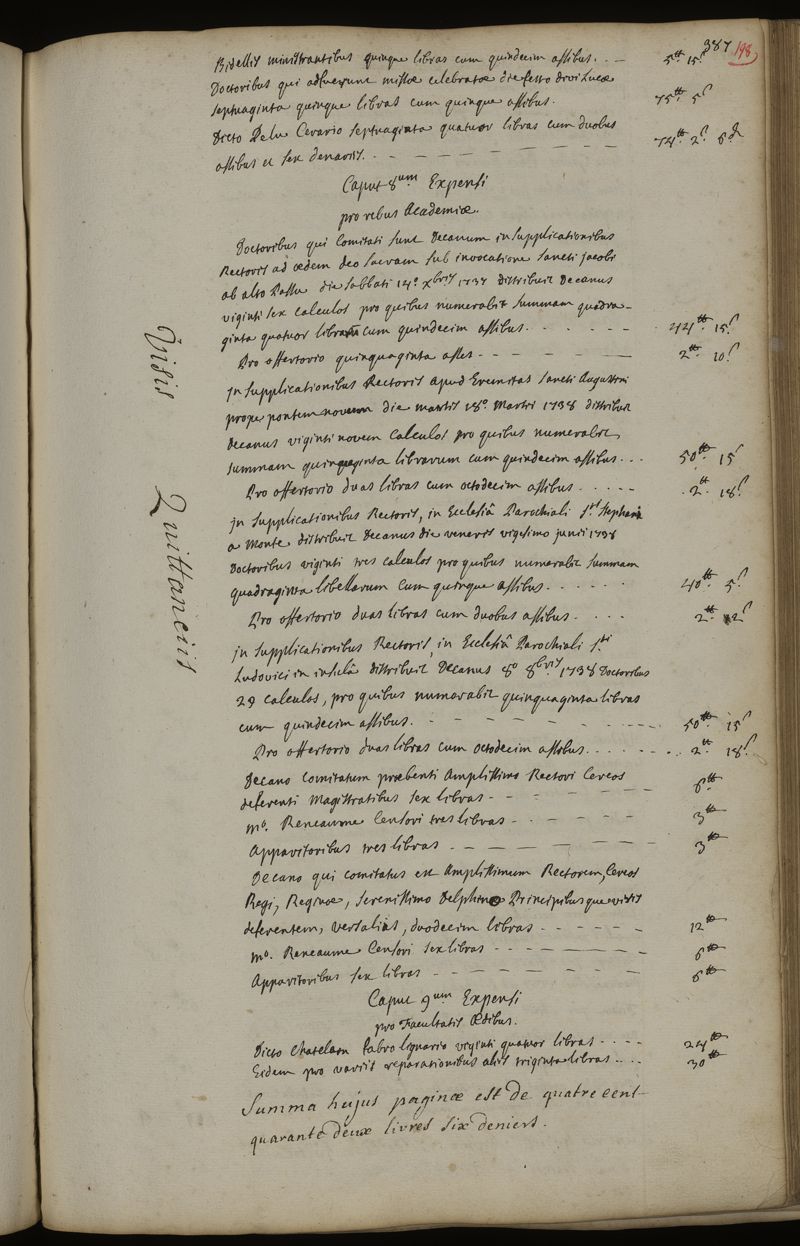 387 198
Bidellis ministrantibus quinque libras cum quindecim assibus. . – 5ᵗᵗ 15ˢ
Doctoribus qui adfuerunt missæ celebratæ die festo divi Lucæ
septuaginta quinque libras cum quinque assibus. 75ᵗᵗ 5ˢ
Dicto Cerario septuaginta quatuor libras cum duobus
assibus et sex denariis. – – – – – – 74ᵗᵗ 2ˢ 6ᵈ
Caput 8um Expensi
pro rebus Academiæ.
Doctoribus qui Comitati sunt Decanum in supplicationibus
Rectoris ad ædem deo sacram sub invocatione sancti jacobi
ab alto Passu die sabbati 14º Xbris 1737 distribuit Decanus
viginti sex calculos pro quibus numerabit summam quadra-
ginta quatuor librarum cum quindecim assibus. . . . . . 44ᵗᵗ 15ˢ
Pro offertorio quinquaginta asses – – – – – 2ᵗᵗ 10ˢ
jn supplicationibus Rectoris apud Eremitas sancti Augustini
prope pontem novum die martis 18º Martii 1738 distribuit
Decanus viginti novem calculos pro quibus numerabit
summam quinquaginta librarum cum quindecim assibus. . . 50ᵗᵗ 15ˢ
Pro offertorio duas libras cum octodecim assibus. . . . . 2ᵗᵗ 18ˢ
jn supplicationibus Rectoris, in Ecclesiâ Parochiali Sti Stephani
a Monte distribuit Decanus die veneris vigesimo junii 1738
Doctoribus viginti tres calculos pro quibus numerabit summam
quadraginta libellarum cum quinque assibus. . . . . . 40ᵗᵗ 5ˢ
Pro offertorio duas libras cum duobus assibus. . . . 2ᵗᵗ 2ˢ
jn supplicationibus Rectoris, in Ecclesiâ Parochiali Sti
Ludovici in insulâ distribuit Decanus 8º 8bris 1738 Doctoribus
29 calculos, pro quibus numerabit quinquaginta libras
cum quindecim assibus. – – – – – 50ᵗᵗ 15ˢ
Pro offertorio duas libras cum octodecim assibus. . . . . . 2ᵗᵗ 18ˢ
Decano comitatum præbenti Amplissimo Rectori Cereos
deferenti Magistratibus sex libras – – – – – 6ᵗᵗ
Mo. Reneaume Censori tres libras – – – – – 3ᵗᵗ
Apparitoribus tres libras – – – – – 3ᵗᵗ
Decano qui comitatus est Amplissimum Rectorem, Cereos
Regi, Reginæ, serenissimo Delphino Principibusque
deferentem, versaliis, duodecim libras – – – – – 12ᵗᵗ
Mo. Reneaume Censori sex libras – – – – – 6ᵗᵗ
Apparitoribus sex libras – – – – – 6ᵗᵗ
Caput 9um Expensi
pro Facultatis Ædibus.
Dicto Chatelain fabro lignario viginti quatuor libras – – – 24ᵗᵗ
Eidem pro variis reparationibus aliis triginta libras . . . . 30ᵗᵗ
Summa hujus paginæ est de quatre cent
quarante deux livres six deniers.
Visis Quittanciis